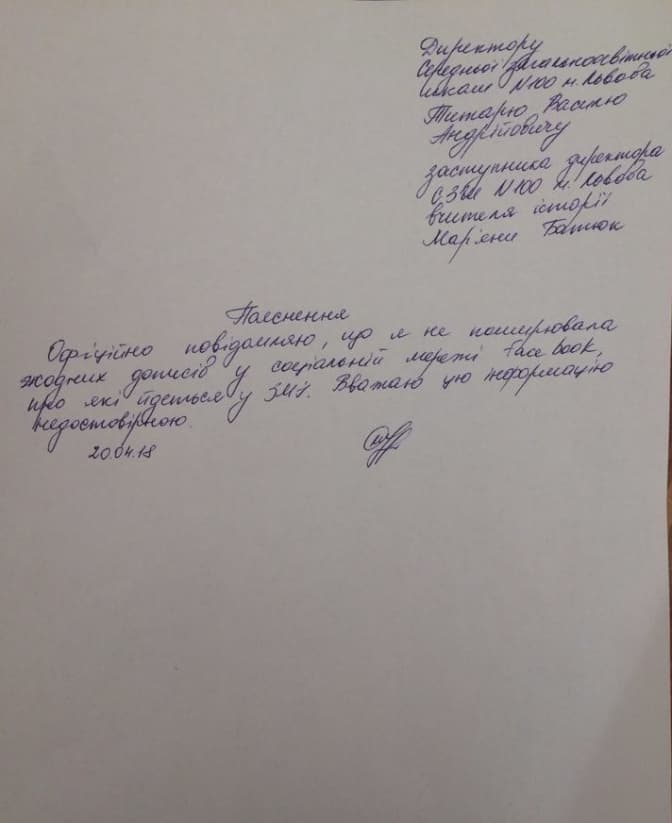 Директору
Середньої загальноосвітньої
школи N100 м. Львова
Титарю Василю
Андрійовичу
заступника директора
СЗШ N100 м. Львова
вчителя історії
Мар'яни Батюк
Пояснення
Офіційно повідомляю, що я не поширювала
жодних дописів у соціальній мережі facebook,
про які йдеться у ЗМІ. Вважаю цю інформацію
недостовірною.
20.04.18